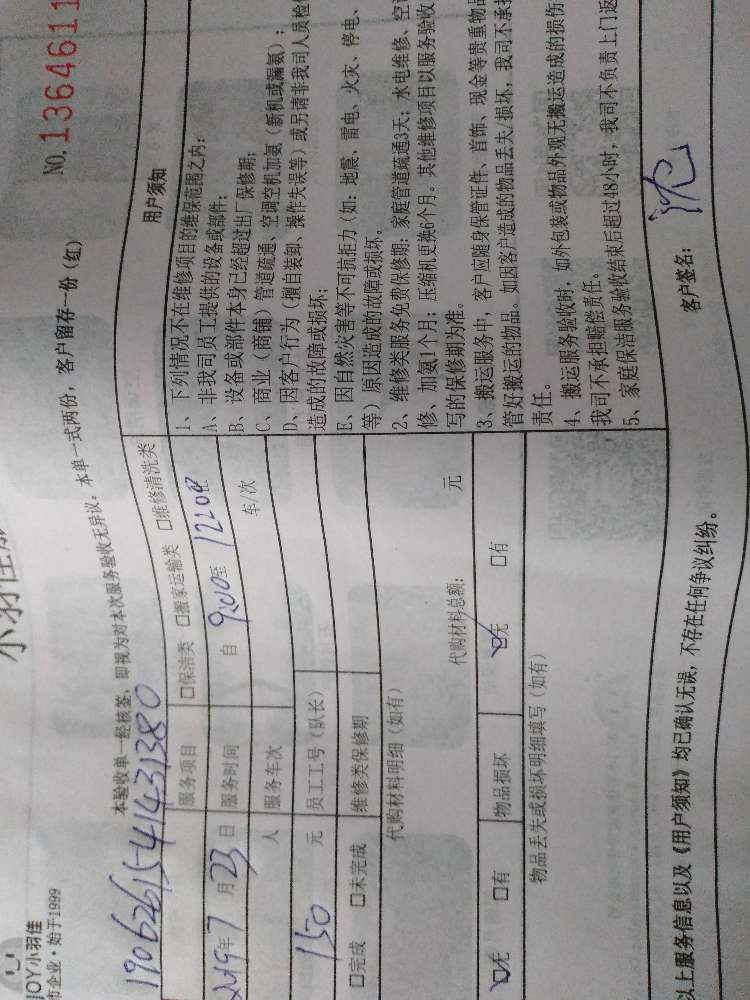 JOY小羽佳
市企业·始于1999
小羽佳
本验收单一经核签，即视为对本次服务验收无异议。本单一式两份，客户留存一份（红）
NO.1364611
1906261541431380
服务项目 □保洁类 □搬家运输类 □维修清洗类
2019年7月23日 服务时间 自 9:00 至 12:00
人 服务车次 车/次
150 元 员工工号（队长）
□完成 □未完成 维修类保修期
代购材料明细（如有）
代购材料总额： 元
☑无 □有 物品损坏 ☑无 □有
物品丢失或损坏明细填写（如有）
用户须知
1、下列情况不在维修项目的维保范围之内：
A、非我司员工提供的设备或部件；
B、设备或部件本身已经超过出厂保修期；
C、商业（商铺）管道疏通、空调空机加氨（新机或漏氨）；
D、因客户行为（擅自装卸、操作失误等）或另请非我司人员检
造成的故障或损坏；
E、因自然灾害等不可抗拒力（如：地震、雷电、火灾、停电、
等）原因造成的故障或损坏。
2、维修类服务免费保修期：家庭管道疏通3天；水电维修、空
修、加氨1个月；压缩机更换6个月。其他维修项目以服务验收
写的保修期为准。
3、搬运服务中，客户应随身保管证件、首饰、现金等贵重物品
管好搬运的物品。如因客户造成的物品丢失/损坏，我司不承担
责任。
4、搬运服务验收时，如外包装或物品外观无搬运造成的损伤
我司不承担赔偿责任。
5、家庭保洁服务验收结束后超过48小时，我司不负责上门返
以上服务信息以及《用户须知》均已确认无误，不存在任何争议纠纷。
客户签名： 沈